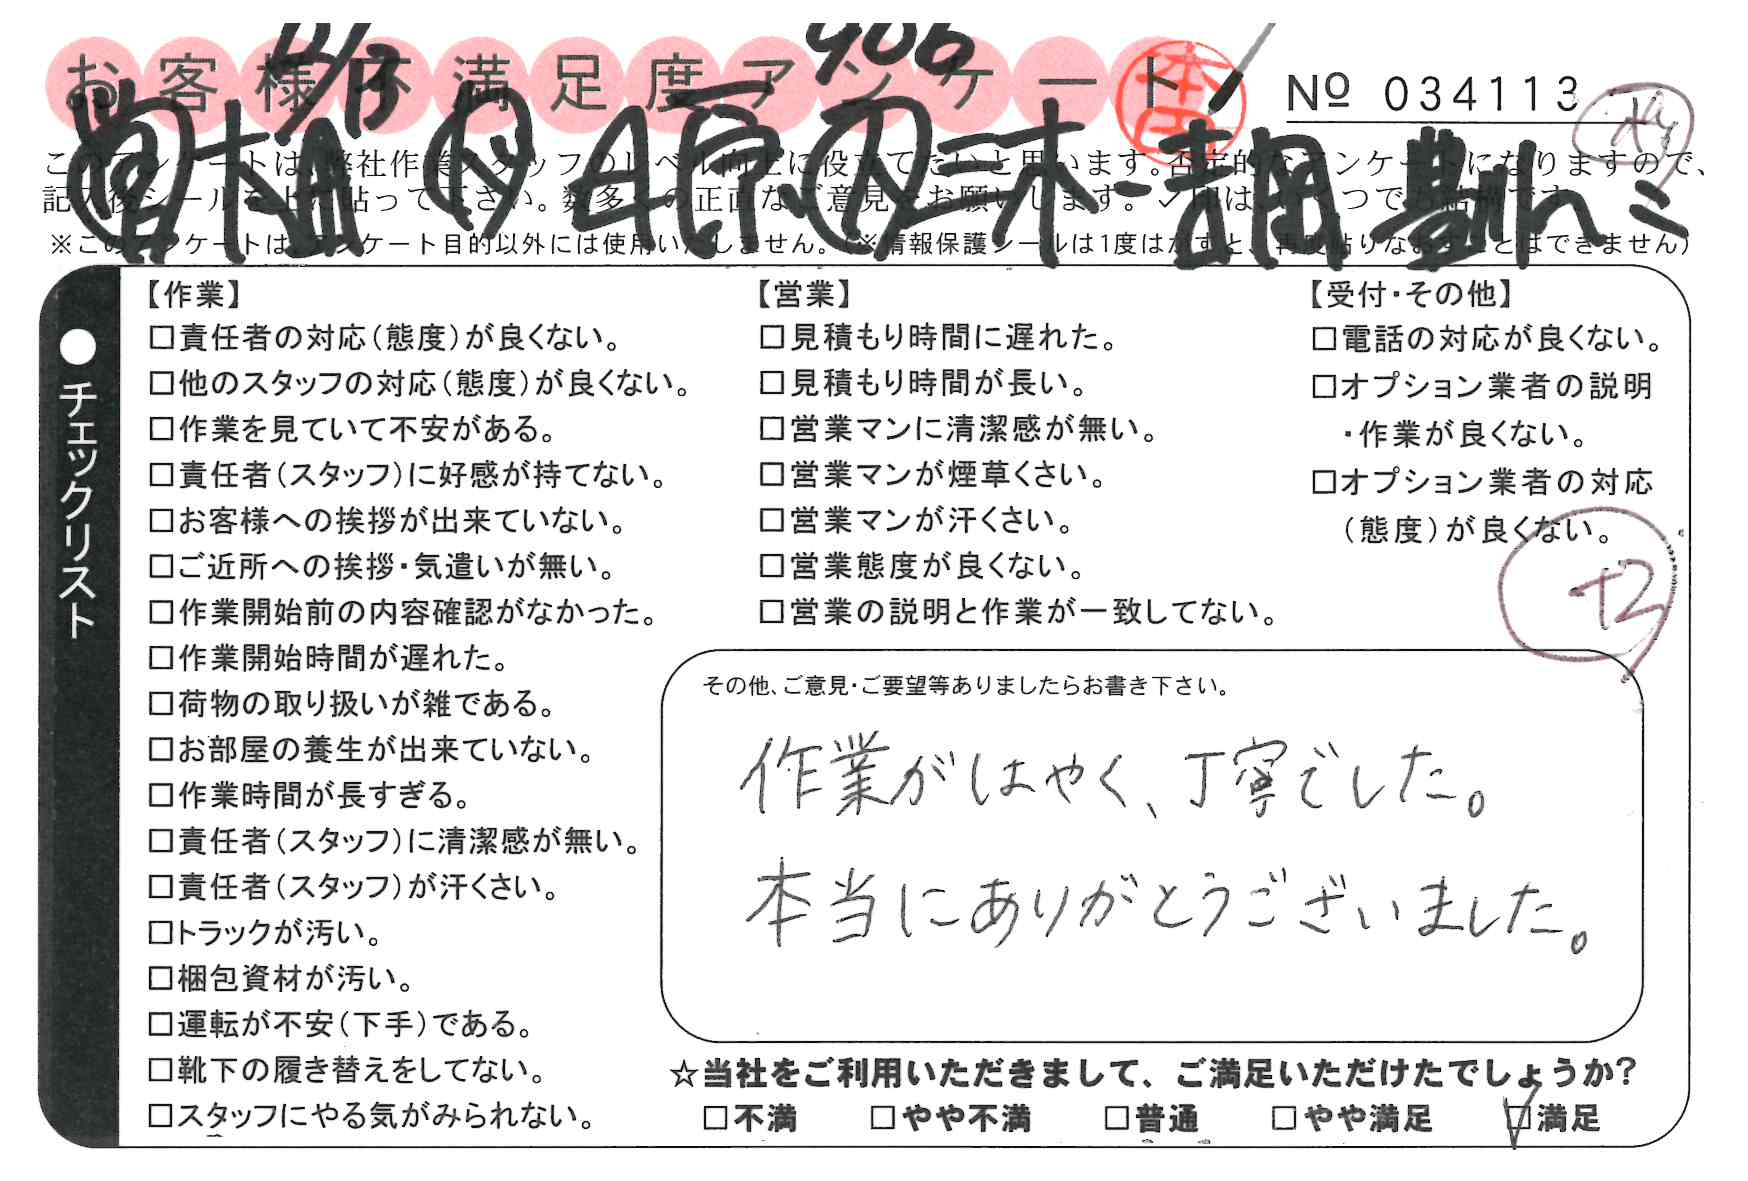 お客様不満足度アンケート
11/13
906
本田
Nº 034113
このアンケートは、弊社作業スタッフのレベル向上に役立てたいと思います。否定的なアンケートになりますので、
記入後シールを上に貼って下さい。数多くの正直なご意見をお願いします。✓印は、いくつでも結構です。
※このアンケートは、アンケート目的以外には使用いたしません。(※情報保護シールは1度はがすと、再度貼りなおすことはできません)
●チェックリスト
【作業】
□責任者の対応(態度)が良くない。
□他のスタッフの対応(態度)が良くない。
□作業を見ていて不安がある。
□責任者(スタッフ)に好感が持てない。
□お客様への挨拶が出来ていない。
□ご近所への挨拶・気遣いが無い。
□作業開始前の内容確認がなかった。
□作業開始時間が遅れた。
□荷物の取り扱いが雑である。
□お部屋の養生が出来ていない。
□作業時間が長すぎる。
□責任者(スタッフ)に清潔感が無い。
□責任者(スタッフ)が汗くさい。
□トラックが汚い。
□梱包資材が汚い。
□運転が不安(下手)である。
□靴下の履き替えをしてない。
□スタッフにやる気がみられない。
【営業】
□見積もり時間に遅れた。
□見積もり時間が長い。
□営業マンに清潔感が無い。
□営業マンが煙草くさい。
□営業マンが汗くさい。
□営業態度が良くない。
□営業の説明と作業が一致してない。
【受付・その他】
□電話の対応が良くない。
□オプション業者の説明
・作業が良くない。
□オプション業者の対応
(態度)が良くない。
その他、ご意見・ご要望等ありましたらお書き下さい。
作業がはやく、丁寧でした。
本当にありがとうございました。
☆当社をご利用いただきまして、ご満足いただけたでしょうか?
□不満 □やや不満 □普通 □やや満足 ☑満足